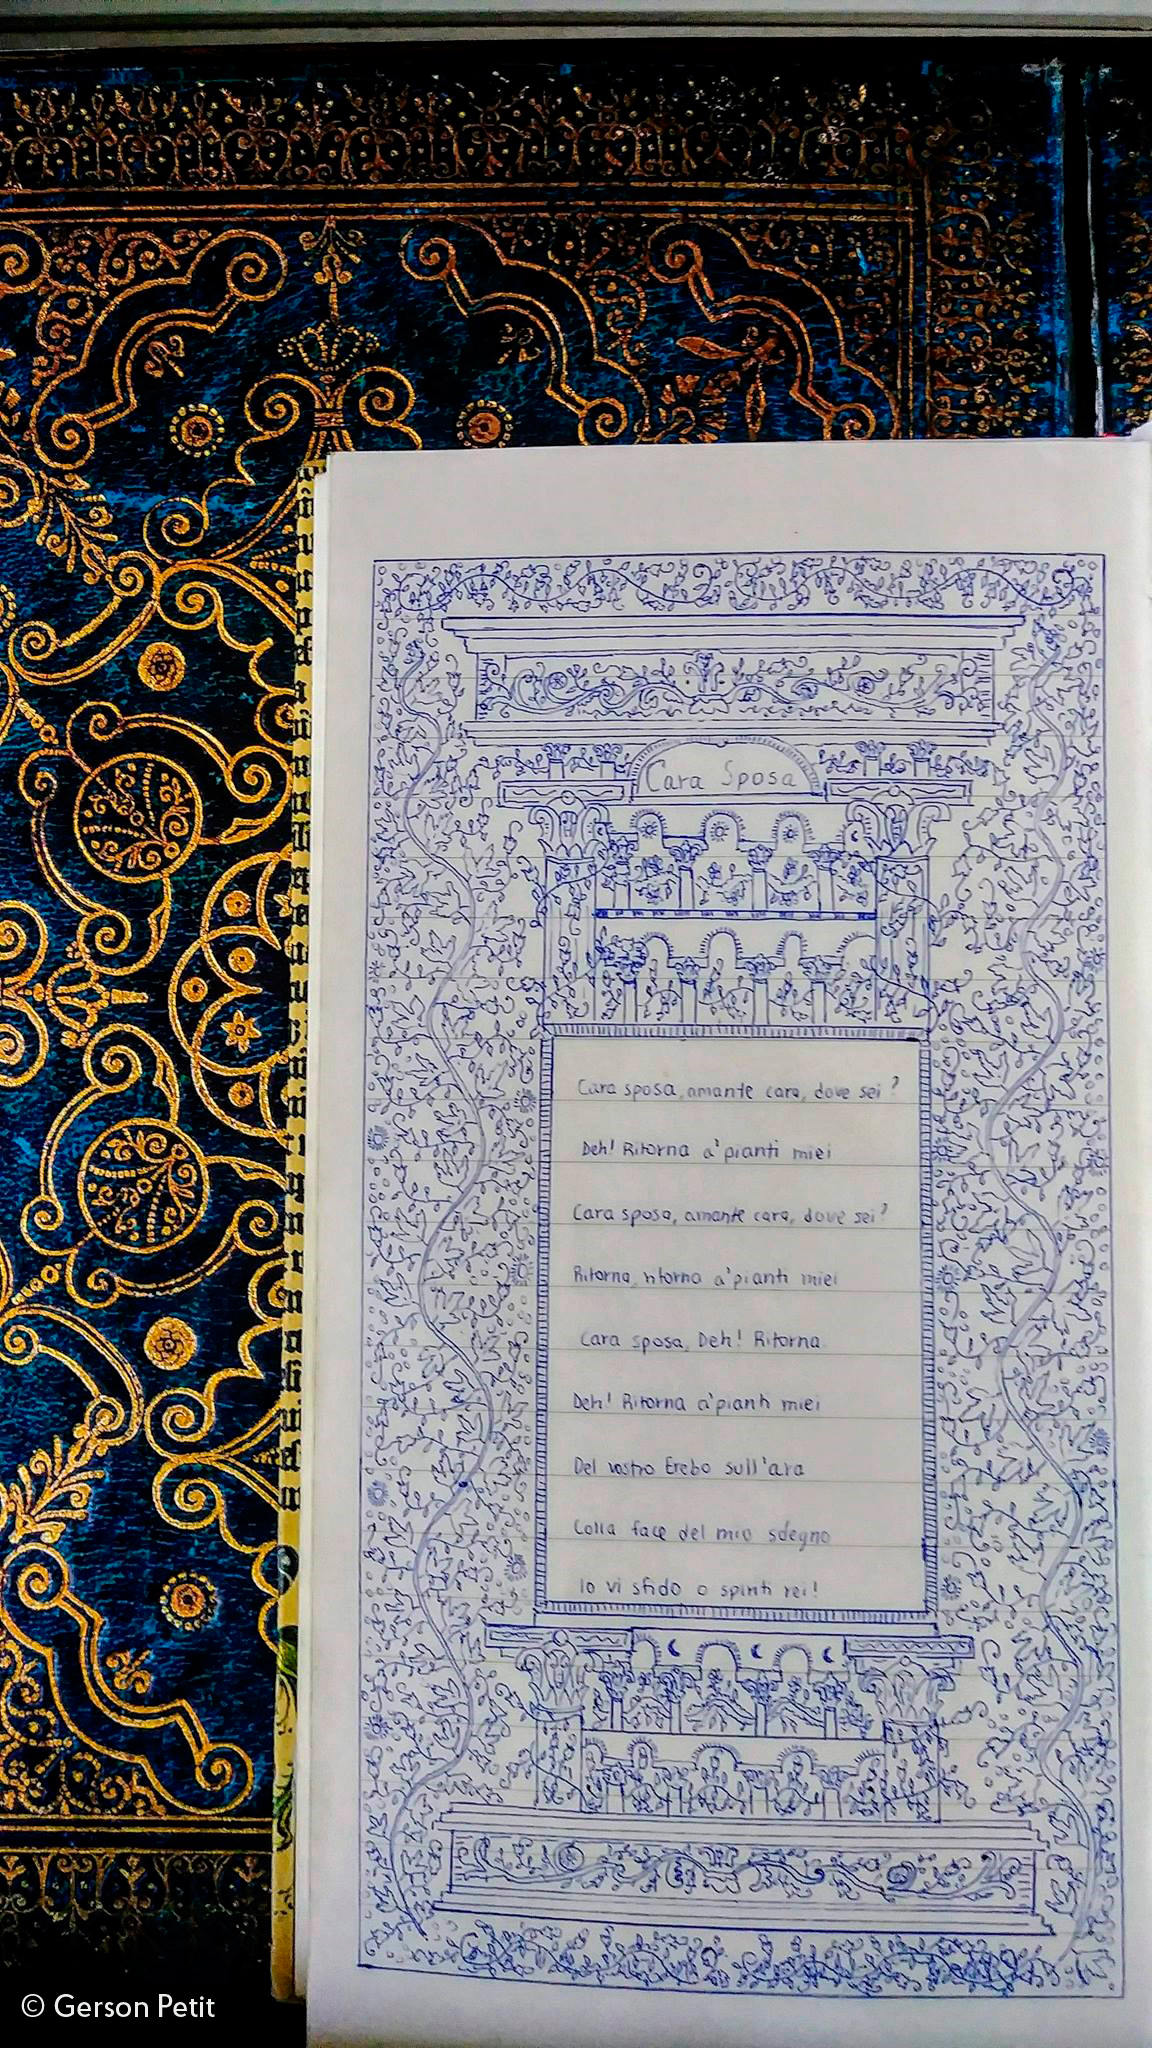 Cara Sposa
Cara sposa, amante cara, dove sei?
Deh! Ritorna a' pianti miei
Cara sposa, amante cara, dove sei?
Ritorna, ritorna a' pianti miei
Cara sposa, Deh! Ritorna
Deh! Ritorna a' pianti miei
Del vostro Erebo sull'ara
Colla face del mio sdegno
Io vi sfido o spirti rei!
© Gerson Petit